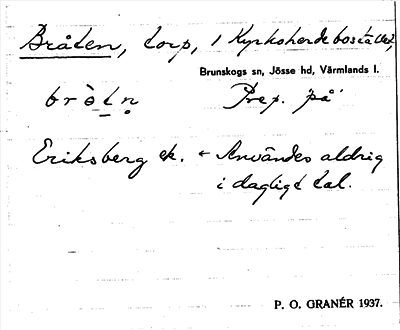 Bråten, torp, i Kyrkoherdebostället,
Brunskogs sn, Jösse hd, Värmlands l.
brò̱tn̥ Prep. "på"
Eriksberg ek. ← Användes aldrig
i dagligt tal.
P. O. GRANÉR 1937.